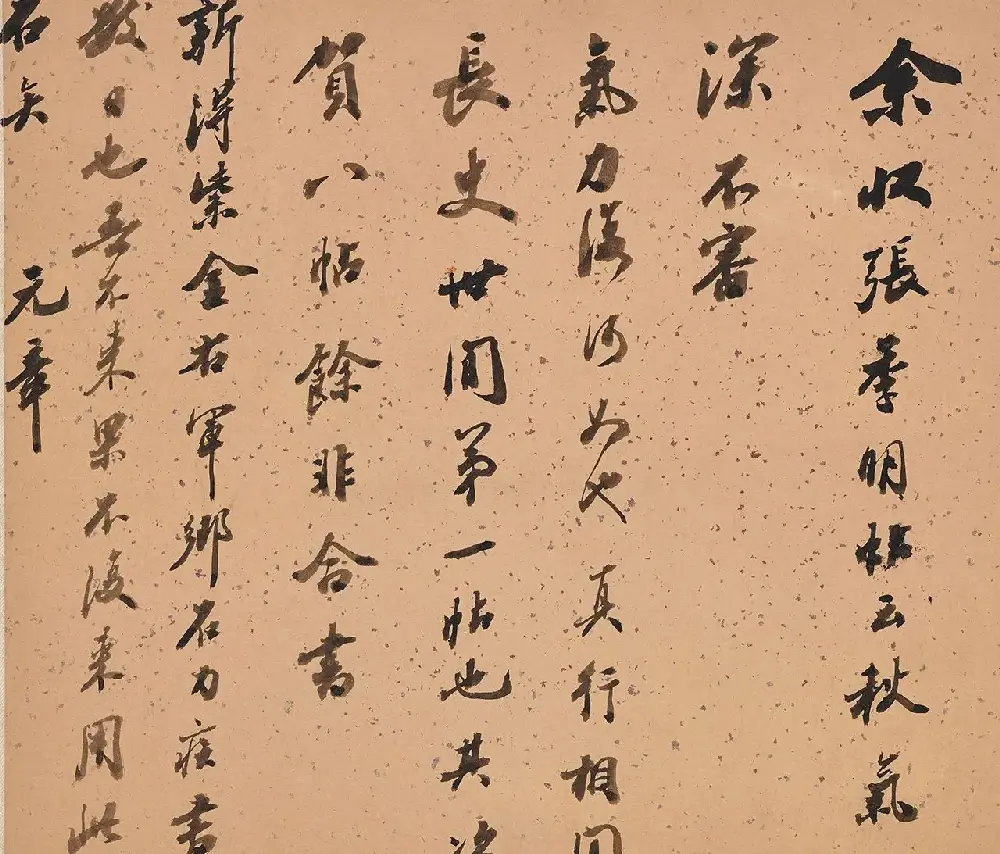 余收張季明帖云秋氣
深不審
氣力復何如也真行相間
長史世間第一帖也其次
賀八帖餘非合書
新得紫金右軍鄉石力疾書
數日也吾不來果不復來用此
石矣 元章